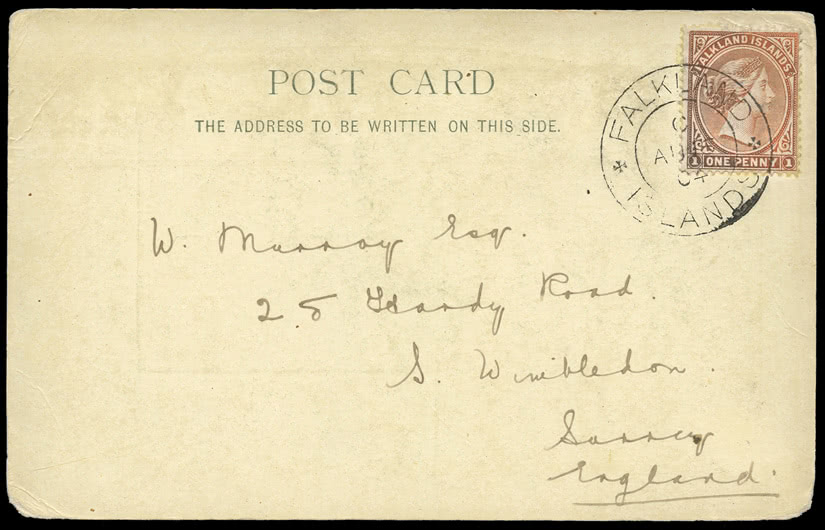 POST CARD
THE ADDRESS TO BE WRITTEN ON THIS SIDE.
FALKLAND ISLANDS
ONE PENNY
1 1
FALKLAND
AU
04
ISLANDS
W. Murray Esq.
25 Hardy Road.
S. Wimbledon.
Surrey
England.